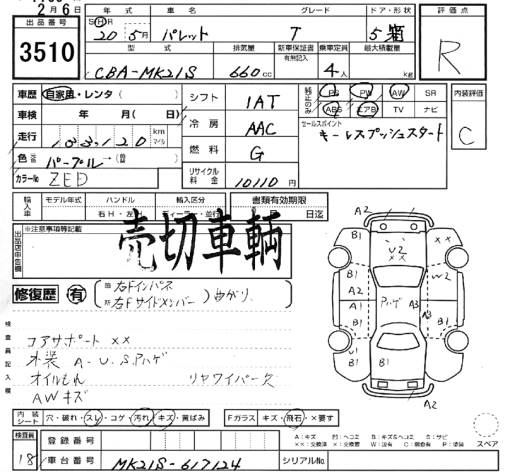 2月6日
出品番号 3510
年式 車名 グレード ドア・形状 評価点
S H R 20 5月 パレット T 5 箱 R
型式 排気量 新車保証書 有無記入 乗車定員 最大積載量
CBA-MK21S 660cc 4人 kg
車歴 自家用・レンタ( ) シフト 1AT 純正のみ PS PW AW SR 内装評価
車検 年 月( 日) ABS エアB TV ナビ C
冷房 AAC セールスポイント
走行 km マイル キーレスプッシュスタート
燃料 G
色 パープル→( )
リサイクル料金 10110円
カラーNo ZED
輸入車 モデル年式 ハンドル 輸入区分 書類有効期限
右H・左H ディーラー・並行 日迄
※注意事項等記載 売切車輌
出品店申告欄
修復歴 有 右Fインパネ
右Fサイドメンバー 曲がり
検査員記入欄
コアサポート ××
外装 A-U.S.Pハゲ
オイルもれ リヤワイパー欠
AWキズ
A2 B1 U2 ×× ×× B1 A2 A1 B1 U1 B1 Pハゲ W2 A3 A3 B1 A2
内装シート 穴・破れ・スレ・コゲ・汚れ・キズ・黄ばみ Fガラス キズ・飛石・×要す
A:キズ 凹:ヘコミ B:キズ&ヘコミ S:サビ
スペア
検査員 18 登録番号
車台番号 MK21S-617124 シリアルNo.